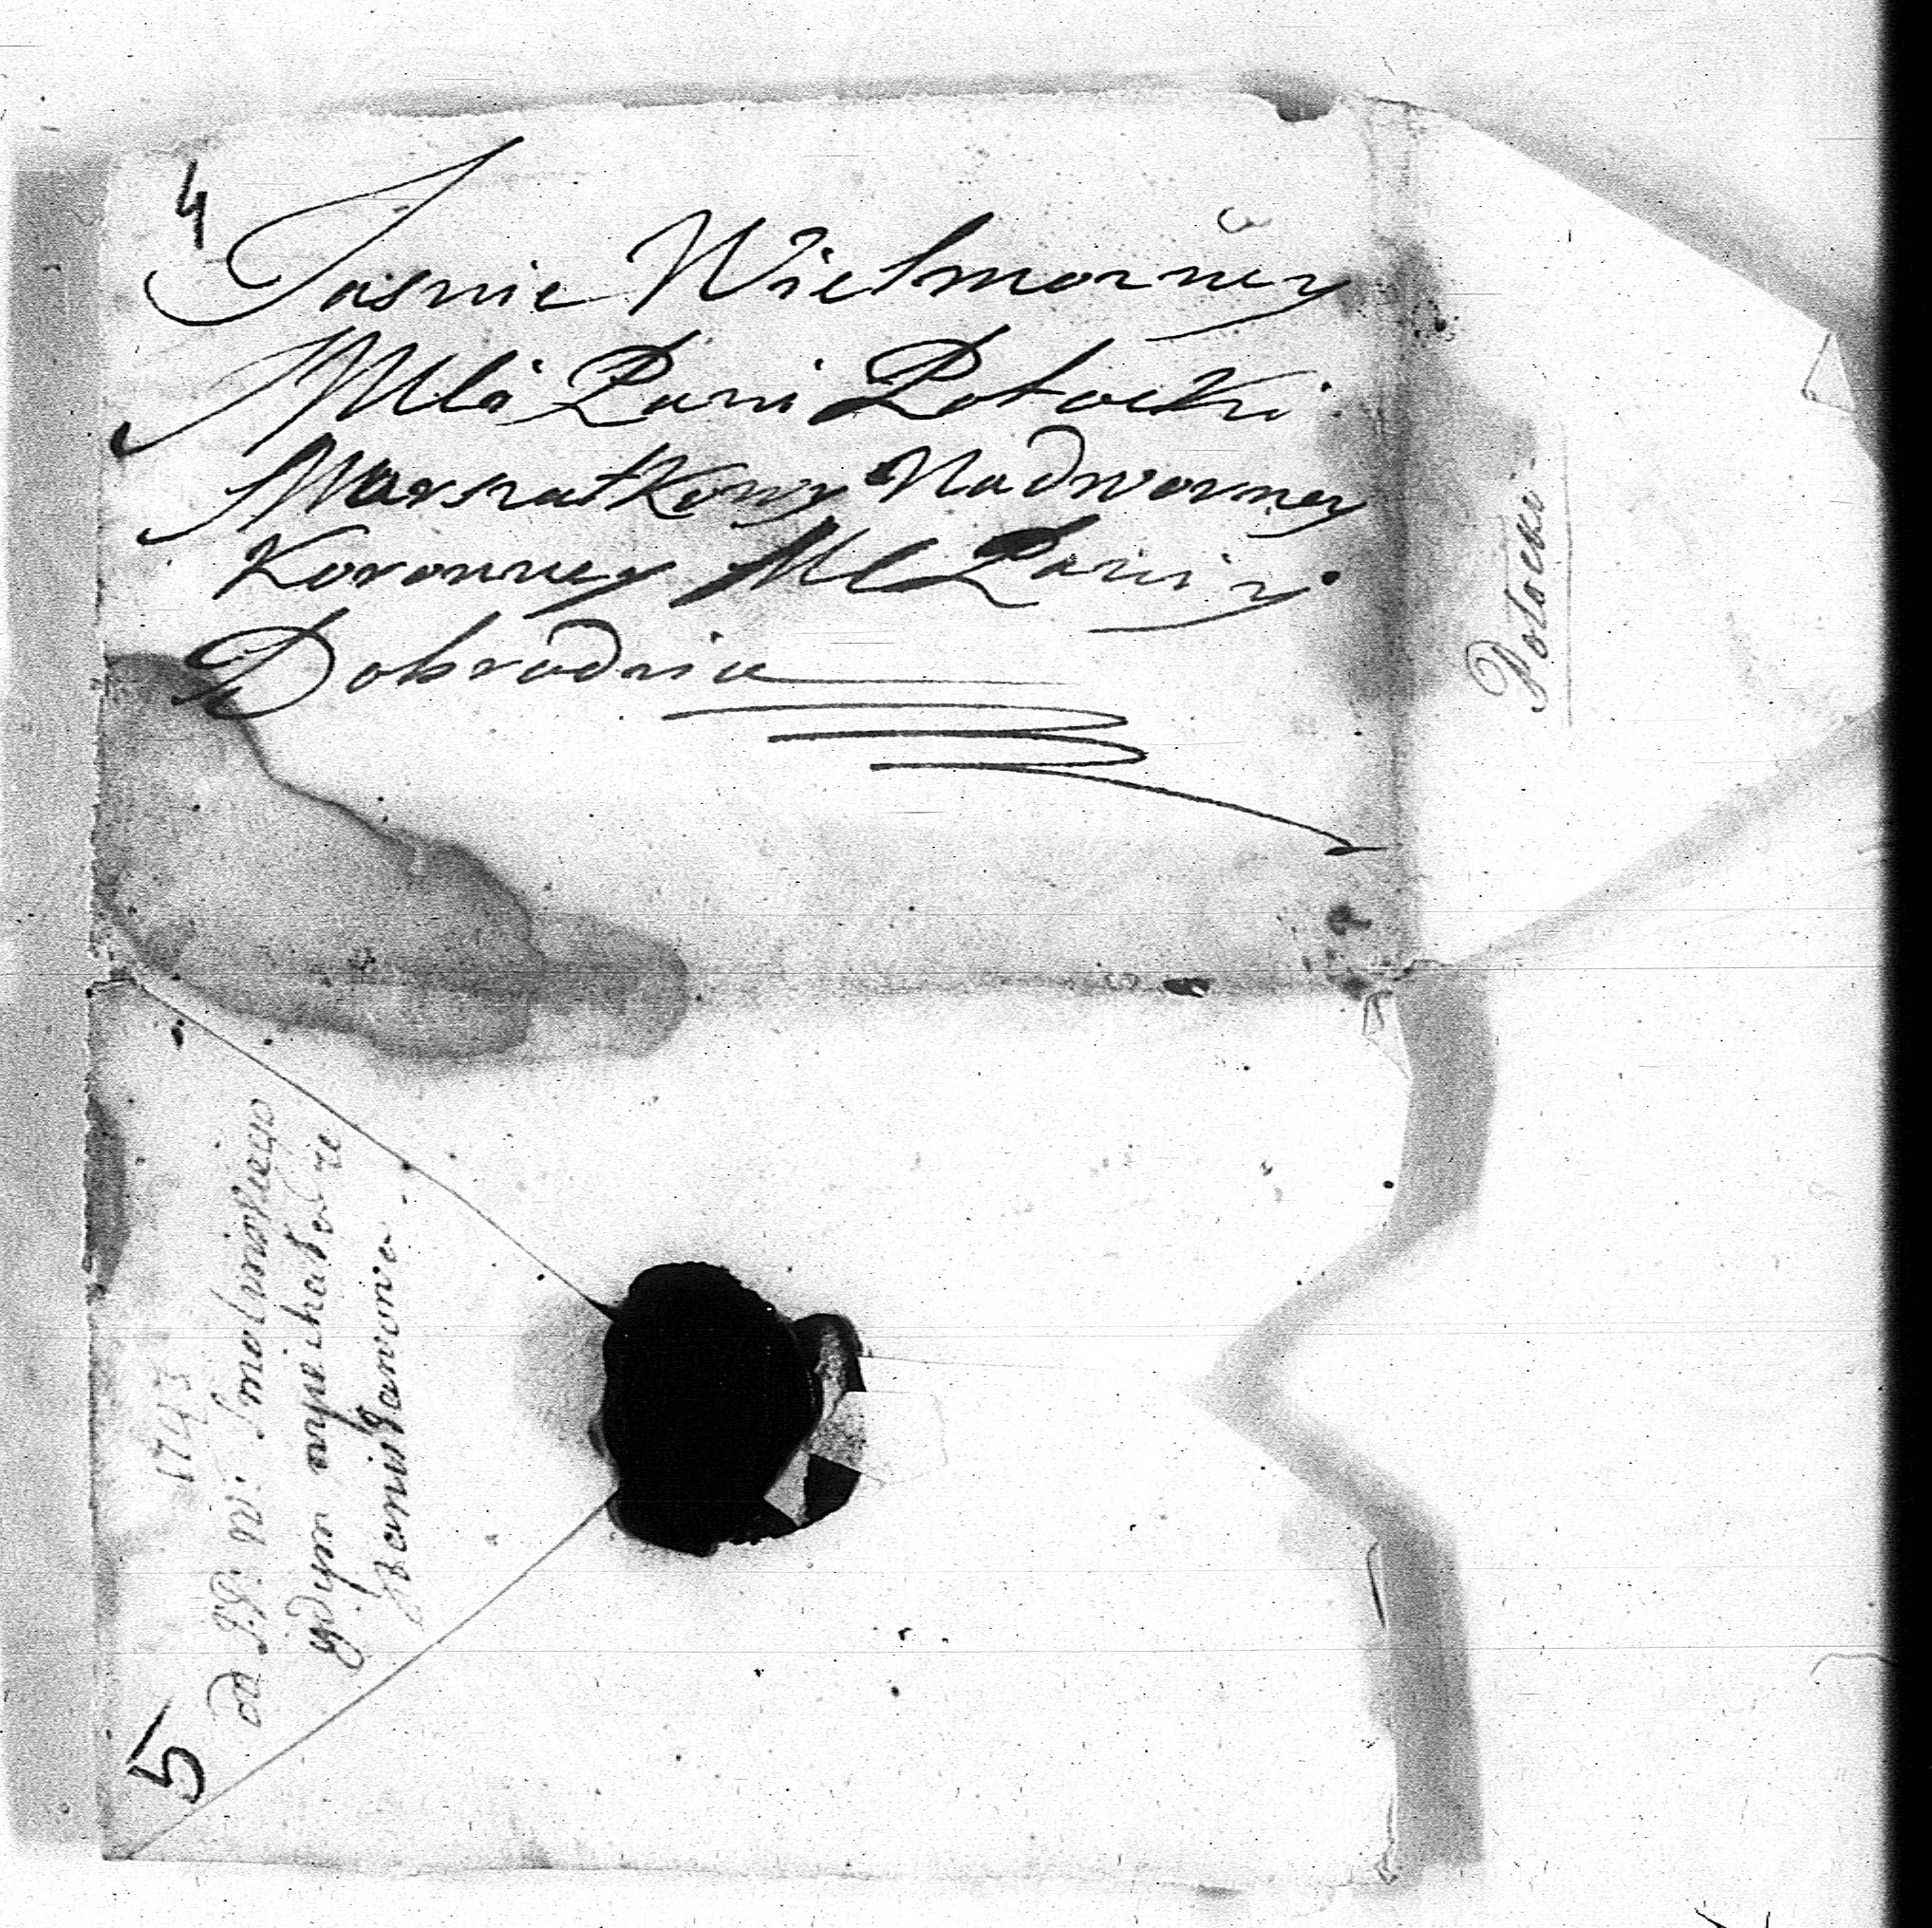 4
Jasnie Wielmozney
Mla Pani Potocki
Marszałkowy Nadworney
Koronney M Pani y
Dobrodzice
Potocki
1743
od J.P. W: Smolinskiego
gdym wyiechała ze
Stanisławowa.
5